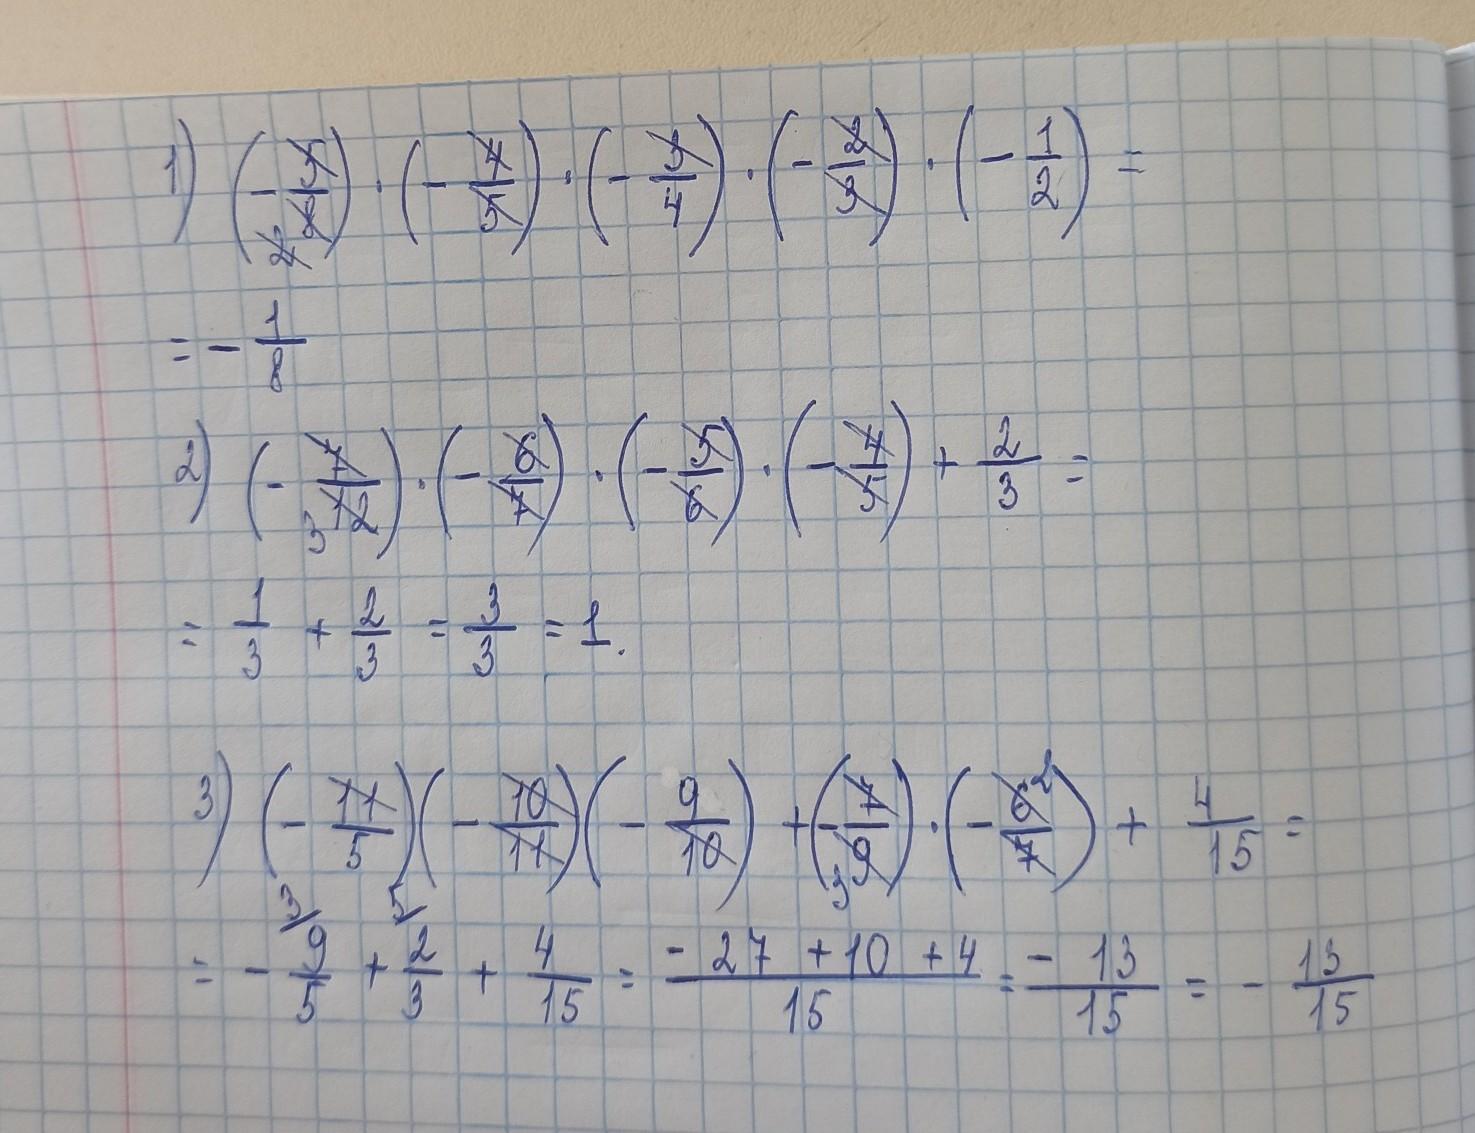 1) (- 5/8 2) · (- 4/5) · (- 3/4) · (- 2/3) · (- 1/2) =
= - 1/8
2) (- 7/12 3) · (- 6/7) · (- 5/6) · (- 4/5) + 2/3 =
= 1/3 + 2/3 = 3/3 = 1.
3) (- 11/5)(- 10/11)(- 9/10) + (- 7/9 3) · (- 6/7 2) + 4/15 =
= - 3/ 9/5 + 5/ 2/3 + 4/15 = - 27 + 10 + 4/15 = - 13/15 = - 13/15